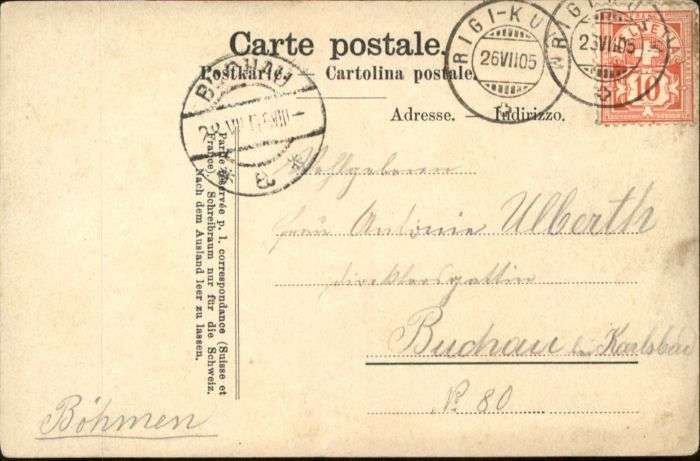 Carte postale.
Postkarte. — Cartolina postale.
Adresse. — Indirizzo.
RIGI-KU
26VII05
RIGI-KU
23VII05
HELVETIA
10
BUCHAU
a
Partie réservée p. l. correspondance (Suisse et
France). Schreibraum nur für die Schweiz.
Nach dem Ausland leer zu lassen.
Frau Antonie Ulberth
Direktorsgattin
Buchau bei Karlsbad
No 80
Böhmen